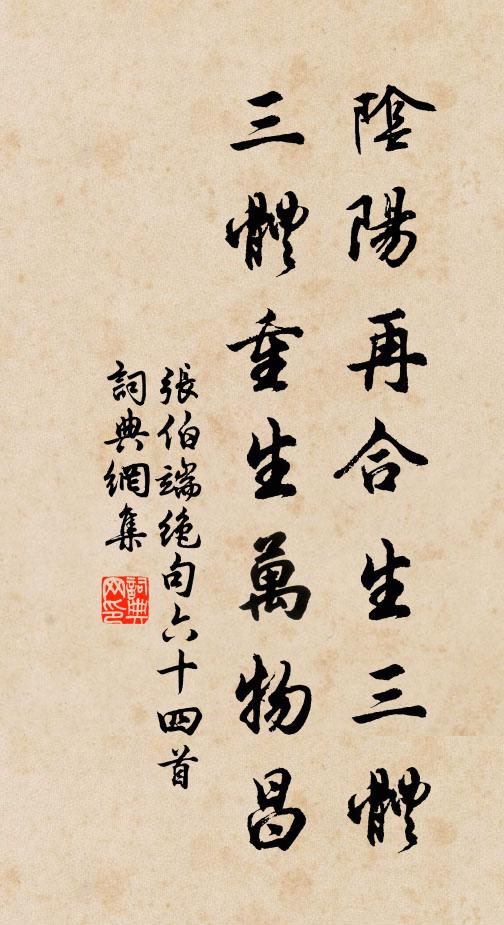 陰陽再合生三體
三體重生萬物昌
張伯端絶句六十四首
詞典網集
詞典網印